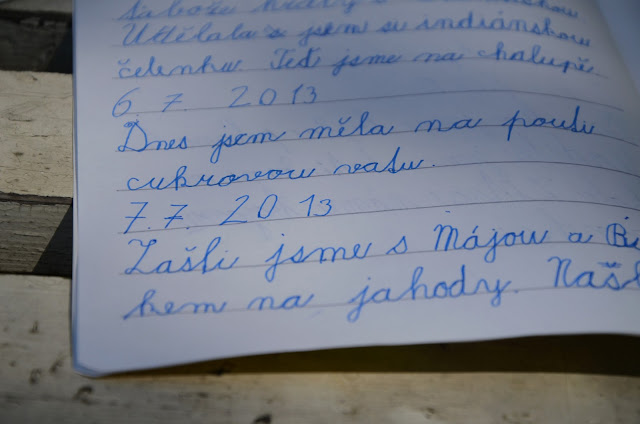 Udělala jsem si indiánskou
čelenku. Teď jsme na chalupě.
6. 7. 2013
Dnes jsem měla na pouti
cukrovou vatu.
7. 7. 2013
Zašli jsme s Májou a
kem na jahody. Našl